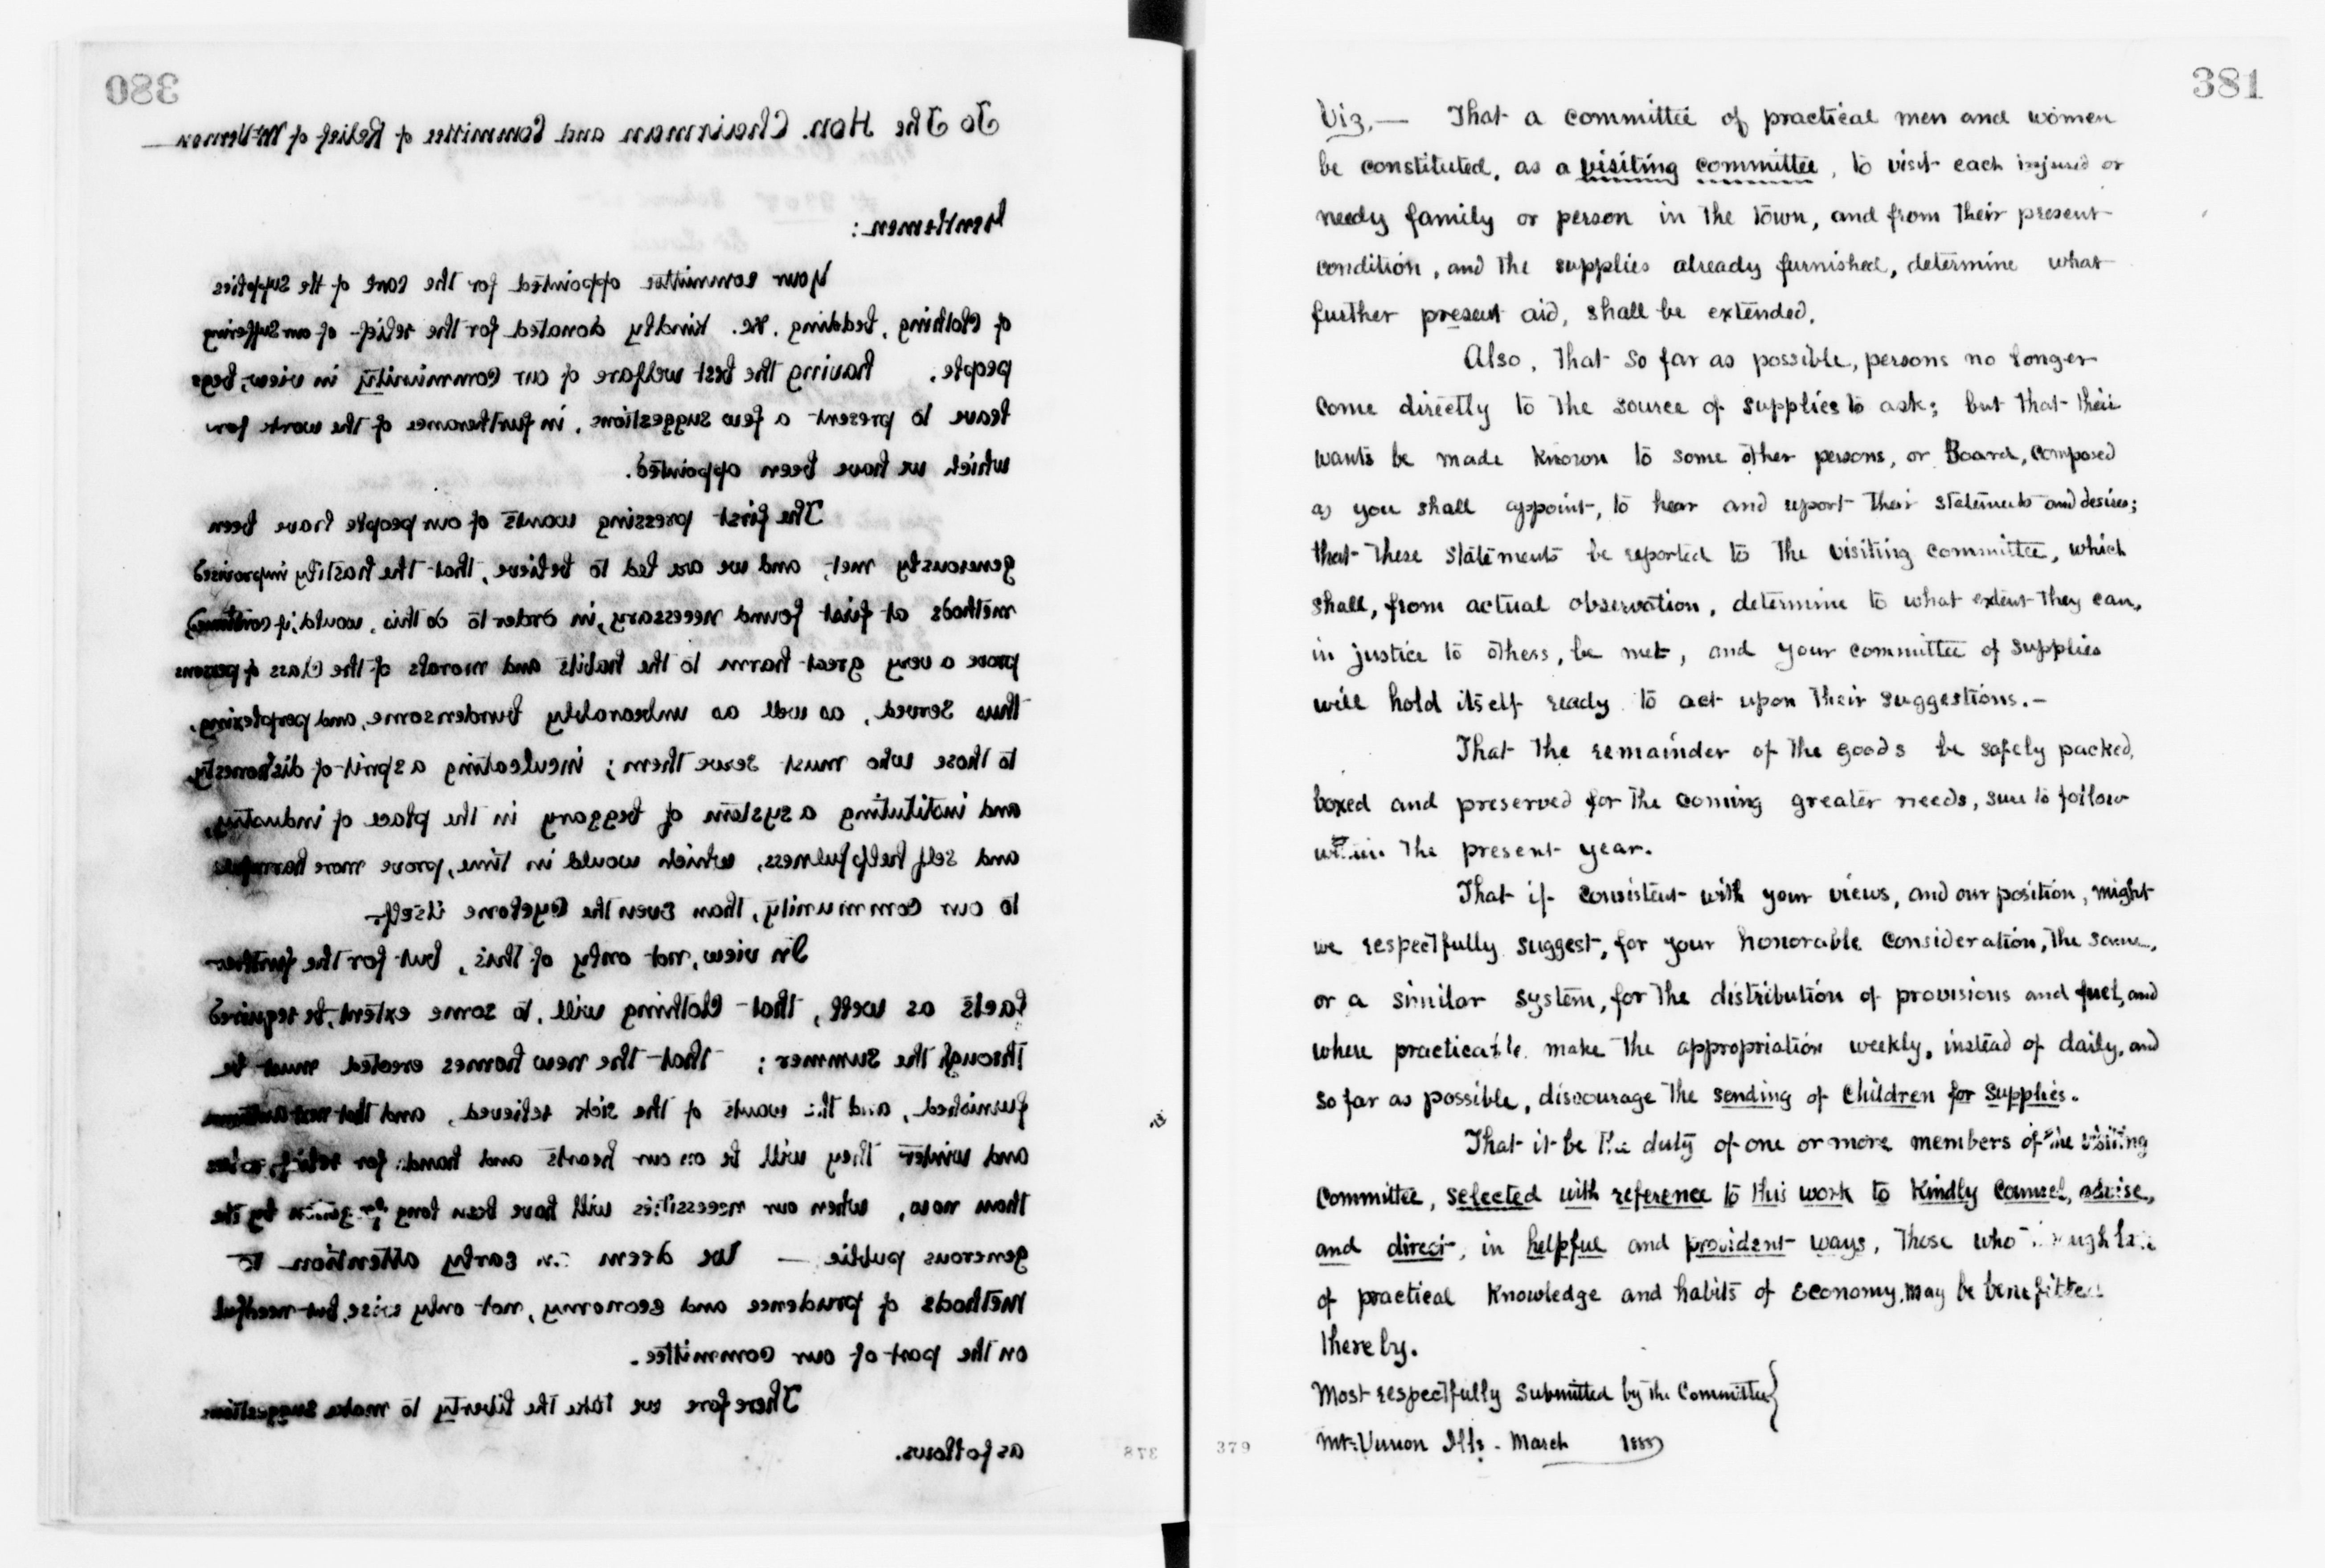 380
To The Hon. Chairman and Committee of Relief of Mt Vernon
Gentlemen:
Your committee appointed for the care of the supplies
of Clothing, bedding, &c. kindly donated for the relief of our suffering
people, having the best welfare of our community in view, begs
leave to present a few suggestions, in furtherance of the work for
which we have been appointed.
The first pressing wants of our people have been
generously met, and we are led to believe, that the hastily improvised
methods at first found necessary, in order to do this, would, if continued,
prove a very great harm to the habits and morals of the class of persons
thus served, as well as unbearably burdensome, and perplexing,
to those who must serve them; inculcating a spirit of dishonesty,
and instituting a system of beggary in the place of industry,
and self helpfulness, which would in time, prove more harmful
to our community, than even the Cyclone itself.
In view, not only of this, but for the further
facts as well, that Clothing will, to some extent, be required
through the summer; that the new homes erected must be
furnished, and the wants of the sick relieved, and that next autumn
and winter they will be on our hearts and hands for relief, more
than now, when our necessities will have been long forgotten by the
generous public — We deem an early attention to
methods of prudence and economy, not only wise, but needful
on the part of our committee.
Therefore we take the liberty to make suggestions
as follows.
378
381
Viz.— That a committee of practical men and women
be constituted, as a visiting committee, to visit each injured or
needy family or person in the town, and from their present
condition, and the supplies already furnished, determine what
further present aid, shall be extended.
Also, that so far as possible, persons no longer
come directly to the source of supplies to ask; but that their
wants be made known to some other persons, or Board, composed
as you shall appoint, to hear and report their statements and desires;
that these statements be reported to the visiting committee, which
shall, from actual observation, determine to what extent they can,
in justice to others, be met, and your committee of supplies
will hold itself ready to act upon their suggestions.—
That the remainder of the goods be safely packed,
boxed and preserved for the coming greater needs, sure to follow
within the present year.
That if consistent with your views, and our position, might
we respectfully suggest, for your honorable consideration, the same,
or a similar system, for the distribution of provisions and fuel, and
where practicable make the appropriation weekly, instead of daily, and
so far as possible, discourage the sending of children for supplies.
That it be the duty of one or more members of the visiting
committee, selected with reference to this work to kindly counsel, advise,
and direct, in helpful and provident ways, those who
of practical knowledge and habits of economy, may be benefitted
thereby.
Most respectfully submitted by the Committee
Mt. Vernon Ills. March 1888
379